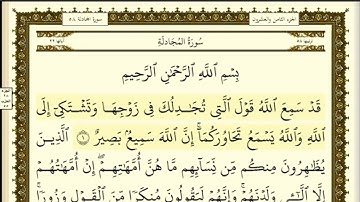 الجزء الثامن والعشرون
سورة المجادلة ٥٨
سُورَةُ المُجَادلَةِ
بِسْمِ اللَّهِ الرَّحْمَٰنِ الرَّحِيمِ
قَدْ سَمِعَ اللَّهُ قَوْلَ الَّتِي تُجَادِلُكَ فِي زَوْجِهَا وَتَشْتَكِي إِلَى
اللَّهِ وَاللَّهُ يَسْمَعُ تَحَاوُرَكُمَا ۚ إِنَّ اللَّهَ سَمِيعٌ بَصِيرٌ ١ الَّذِينَ
يُظَاهِرُونَ مِنكُم مِّن نِّسَائِهِم مَّا هُنَّ أُمَّهَاتِهِمْ ۖ إِنْ أُمَّهَاتُهُمْ
إِلَّا اللَّائِي وَلَدْنَهُمْ ۚ وَإِنَّهُمْ لَيَقُولُونَ مُنكَرًا مِّنَ الْقَوْلِ وَزُورًا ۚ